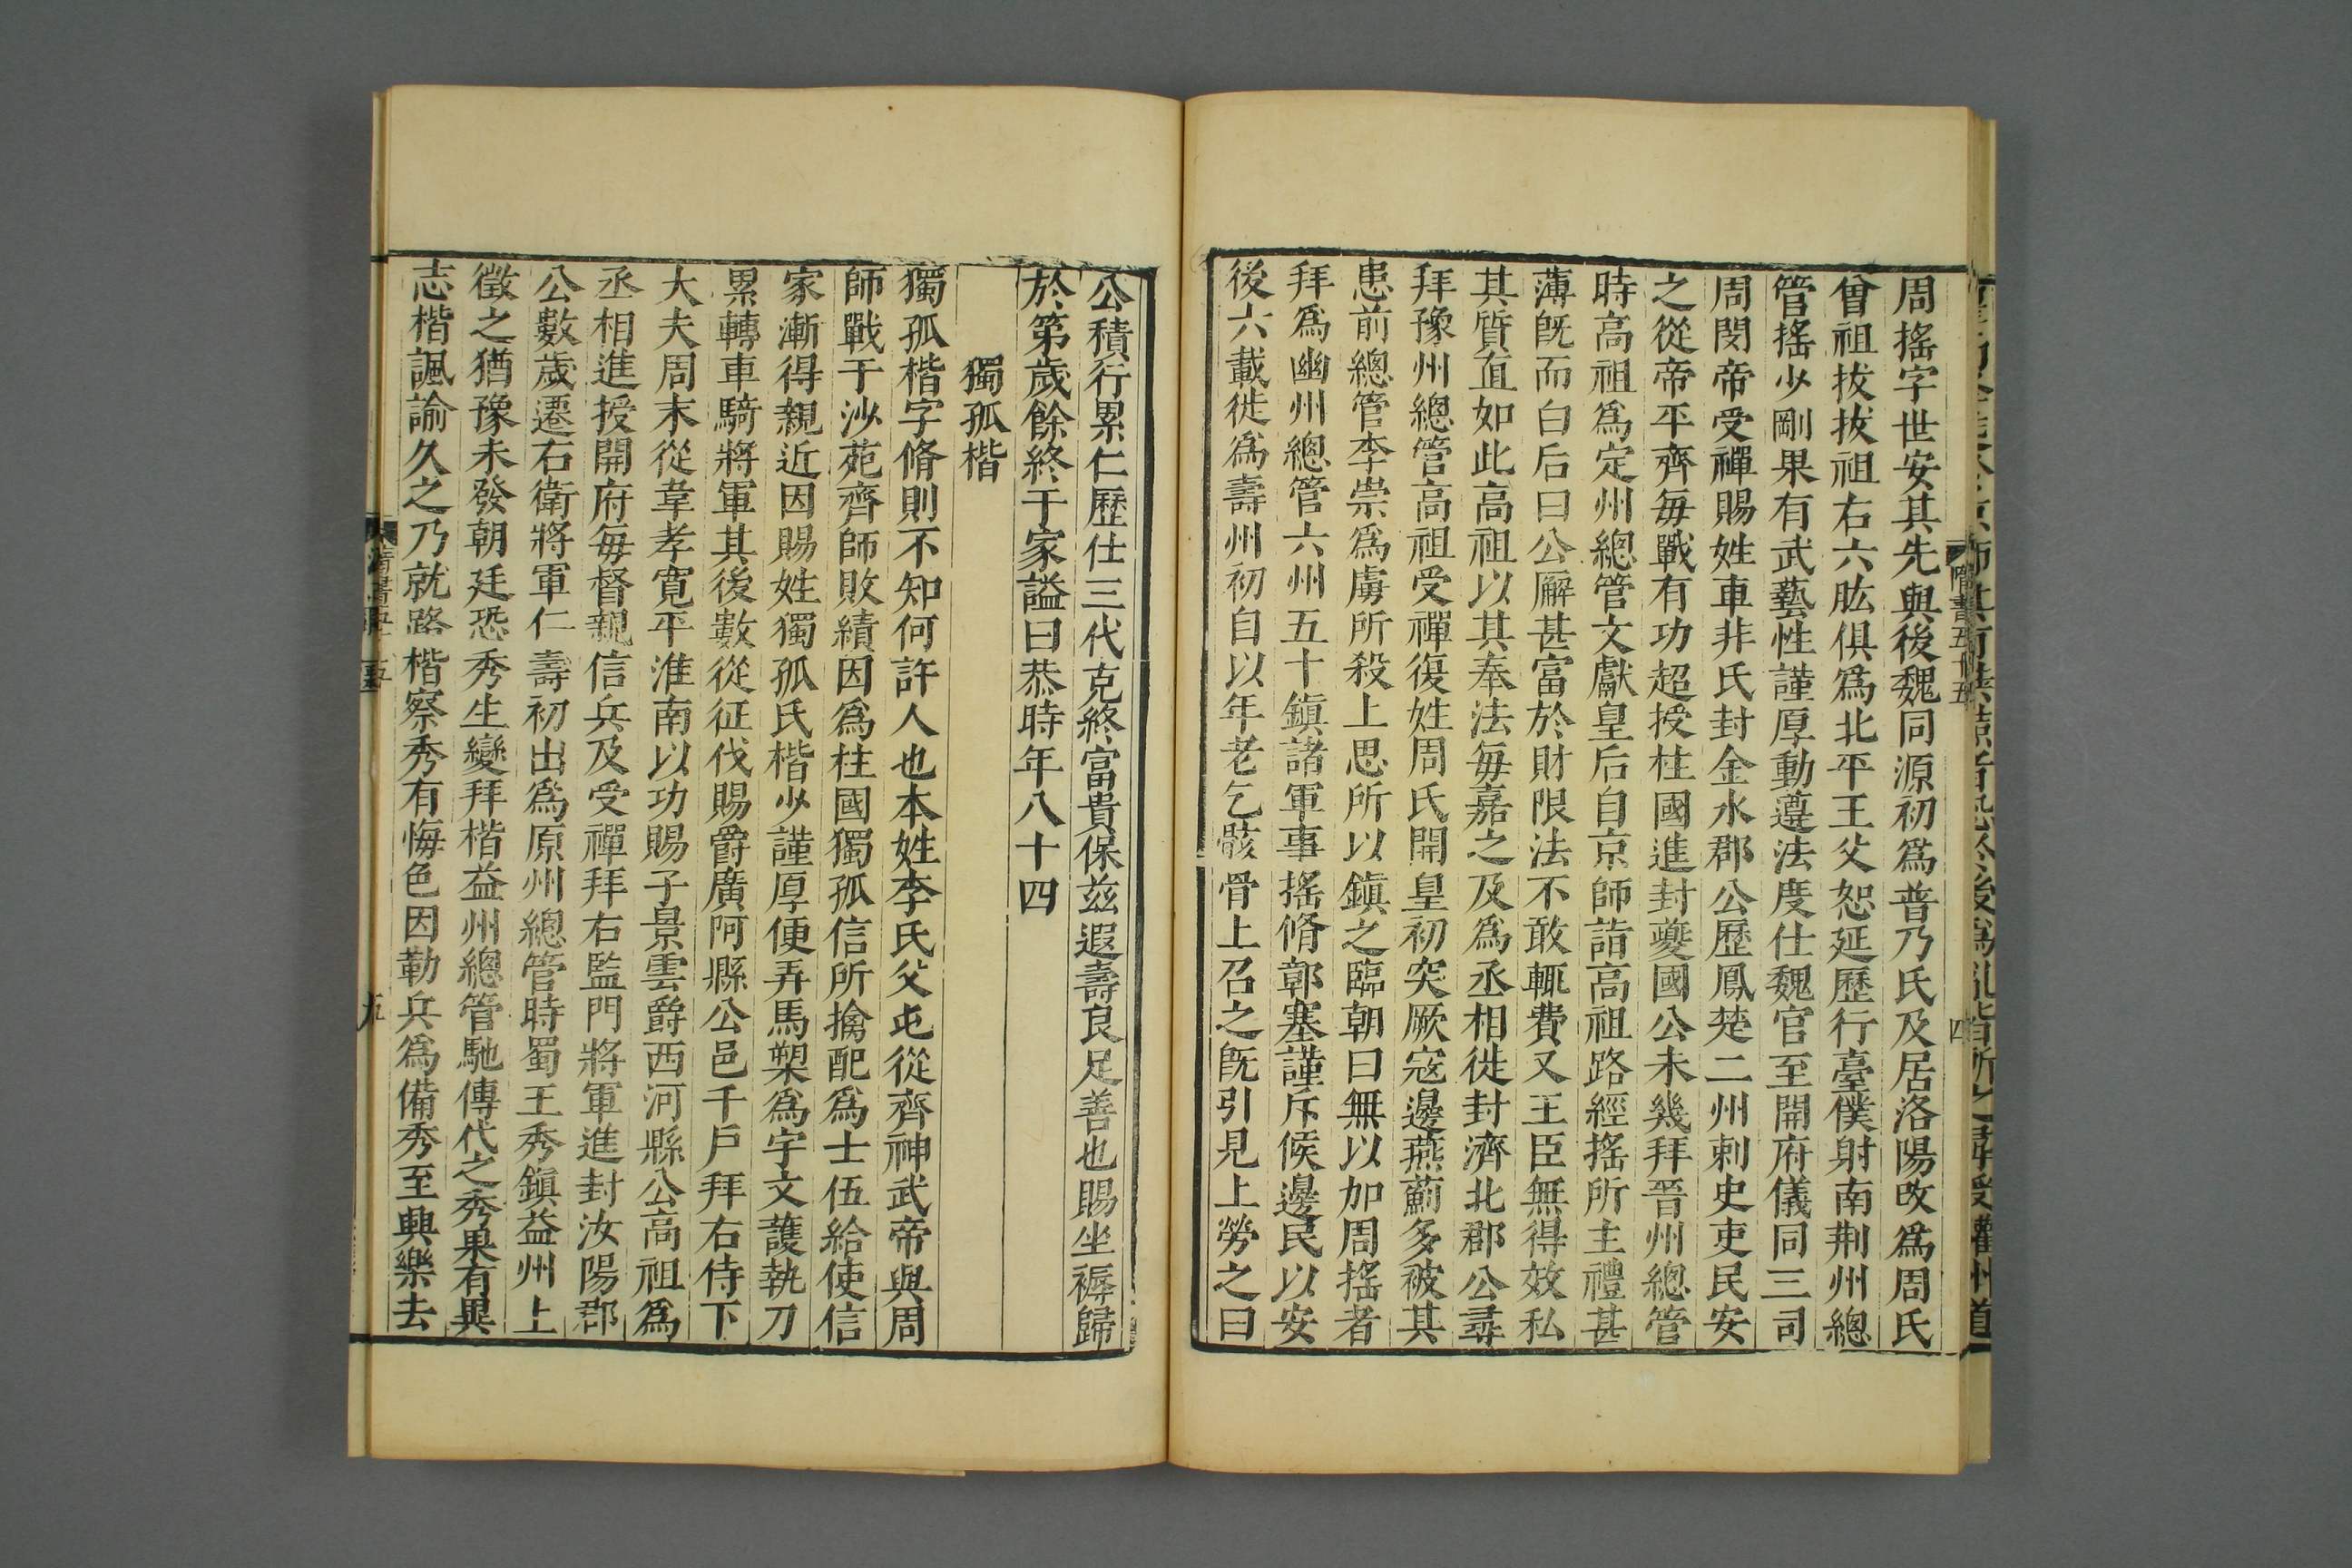 周搖字世安其先與後魏同源初爲普乃氏及居洛陽改爲周氏
曾祖拔拔祖右六肱俱爲北平王父恕延歷行臺僕射南荆州總
管搖少剛果有武藝性謹厚動遵法度仕魏官至開府儀同三司
周閔帝受禪賜姓車非氏封金水郡公歷鳳楚二州刺史吏民安
之從帝平齊毎戰有功超授柱國進封夔國公未幾拜晉州總管
時高祖爲定州總管文獻皇后自京師詣高祖路經搖所主禮甚
薄旣而白后曰公廨甚富於財限法不敢輒費又王臣無得效私
其質直如此高祖以其奉法毎嘉之及爲丞相徙封濟北郡公尋
拜豫州總管高祖受禪復姓周氏開皇初突厥寇邊燕薊多被其
患前總管李崇爲虜所殺上思所以鎭之臨朝曰無以加周搖者
拜爲幽州總管六州五十鎭諸軍事搖脩鄣塞謹斥候邊民以安
後六載徙爲壽州初自以年老乞骸骨上召之旣引見上勞之曰
公積行累仁歷仕三代克終富貴保兹遐壽良足善也賜坐褥歸
於第歲餘終于家謚曰恭時年八十四
獨孤楷
獨孤楷字脩則不知何許人也本姓李氏父屯從齊神武帝與周
師戰于沙苑齊師敗績因爲柱國獨孤信所擒配爲士伍給使信
家漸得親近因賜姓獨孤氏楷少謹厚便弄馬槊爲宇文護執刀
累轉車騎將軍其後數從征伐賜爵廣阿縣公邑千戸拜右侍下
大夫周末從韋孝寬平淮南以功賜子景雲爵西河縣公高祖爲
丞相進授開府毎督親信兵及受禪拜右監門將軍進封汝陽郡
公數歲遷右衛將軍仁壽初出爲原州總管時蜀王秀鎭益州上
徵之猶豫未發朝廷恐秀生變拜楷益州總管馳傳代之秀果有異
志楷諷諭久之乃就路楷察秀有悔色因勒兵爲備秀至興樂去